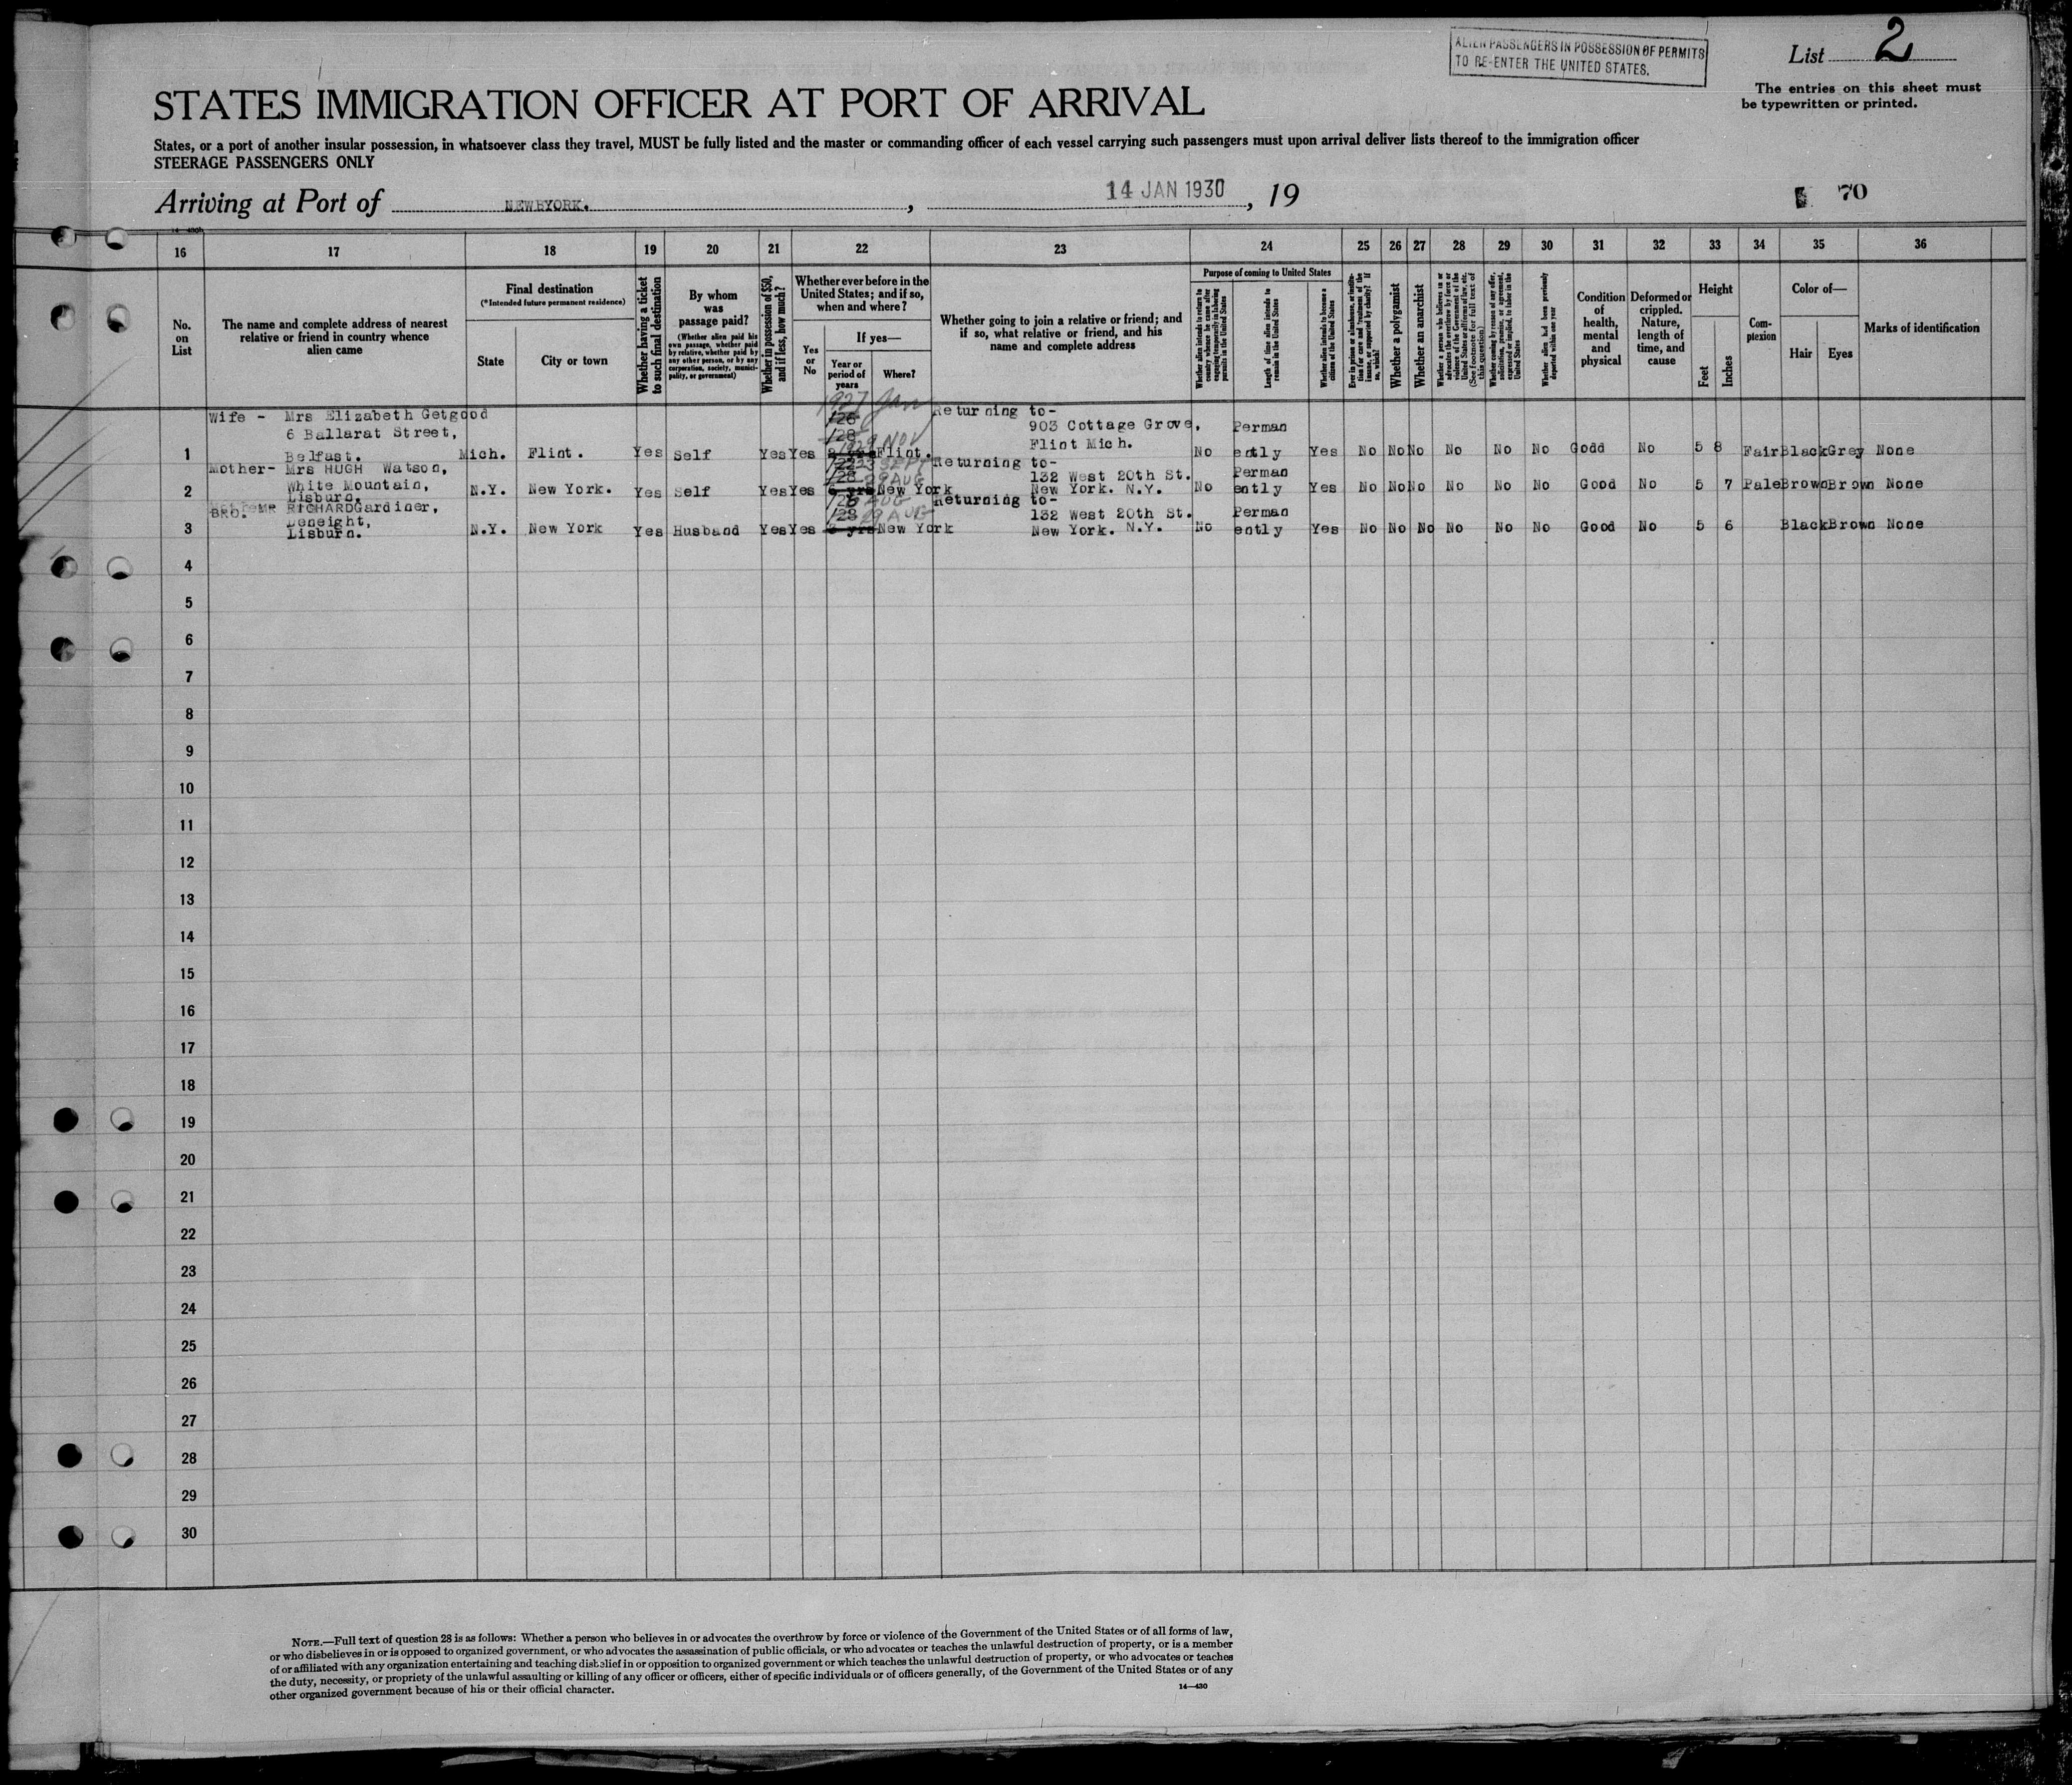 ALIEN PASSENGERS IN POSSESSION OF PERMITS
TO RE-ENTER THE UNITED STATES.
List 2
The entries on this sheet must
be typewritten or printed.
STATES IMMIGRATION OFFICER AT PORT OF ARRIVAL
States, or a port of another insular possession, in whatsoever class they travel, MUST be fully listed and the master or commanding officer of each vessel carrying such passengers must upon arrival deliver lists thereof to the immigration officer
STEERAGE PASSENGERS ONLY
Arriving at Port of NEWBYORK. , 14 JAN 1930, 19
70
16 17 18 19 20 21 22 23 24 25 26 27 28 29 30 31 32 33 34 35 36
No. on List
The name and complete address of nearest relative or friend in country whence alien came
Final destination
(*Intended future permanent residence)
State
City or town
Whether having a ticket to such final destination
By whom was passage paid?
(Whether alien paid his own passage, whether paid by relative, whether paid by any other person, or by any corporation, society, municipality, or government)
Whether in possession of $50, and if less, how much?
Whether ever before in the United States; and if so, when and where?
Yes or No
If yes—
Year or period of years
Where?
Whether going to join a relative or friend; and if so, what relative or friend, and his name and complete address
Purpose of coming to United States
Whether alien intends to return to country whence he came after engaging temporarily in laboring pursuits in the United States
Length of time alien intends to remain in the United States
Whether alien intends to become a citizen of the United States
Ever in prison or almshouse, or institution for care and treatment of the insane, or supported by charity? If so, which?
Whether a polygamist
Whether an anarchist
Whether a person who believes in or advocates the overthrow by force or violence of the Government of the United States or all forms of law, etc. (See footnote for full text of this question)
Whether coming by reason of any offer, solicitation, promise, or agreement, expressed or implied, to labor in the United States
Whether alien had been previously deported within one year
Condition of health, mental and physical
Deformed or crippled. Nature, length of time, and cause
Height
Feet
Inches
Complexion
Color of—
Hair
Eyes
Marks of identification
Wife - Mrs Elizabeth Getgood
6 Ballarat Street,
1 Belfast. Mich. Flint. Yes Self Yes Yes 1927 Jan 1929 NOV Flint. Returning to-
903 Cottage Grove,
Flint Mich. No Permanently Yes No No No No No No Godd No 5 8 Fair Black Grey None
Mother- Mrs HUGH Watson,
White Mountain,
2 Lisburn. N.Y. New York. Yes Self Yes Yes SEPT 29 AUG New York Returning to-
132 West 20th St.
New York. N.Y. No Permanently Yes No No No No No No Good No 5 7 Pale Brown Brown None
BRO. MR RICHARDGardiner,
Deneight,
3 Lisburn. N.Y. New York Yes Husband Yes Yes AUG 29 AUG New York Returning to-
132 West 20th St.
New York. N.Y. No Permanently Yes No No No No No No Good No 5 6 Black Brown None
4
5
6
7
8
9
10
11
12
13
14
15
16
17
18
19
20
21
22
23
24
25
26
27
28
29
30
NOTE.—Full text of question 28 is as follows: Whether a person who believes in or advocates the overthrow by force or violence of the Government of the United States or of all forms of law,
or who disbelieves in or is opposed to organized government, or who advocates the assassination of public officials, or who advocates or teaches the unlawful destruction of property, or is a member
of or affiliated with any organization entertaining and teaching disbelief in or opposition to organized government or which teaches the unlawful destruction of property, or who advocates or teaches
the duty, necessity, or propriety of the unlawful assaulting or killing of any officer or officers, either of specific individuals or of officers generally, of the Government of the United States or of any
other organized government because of his or their official character.
14—430